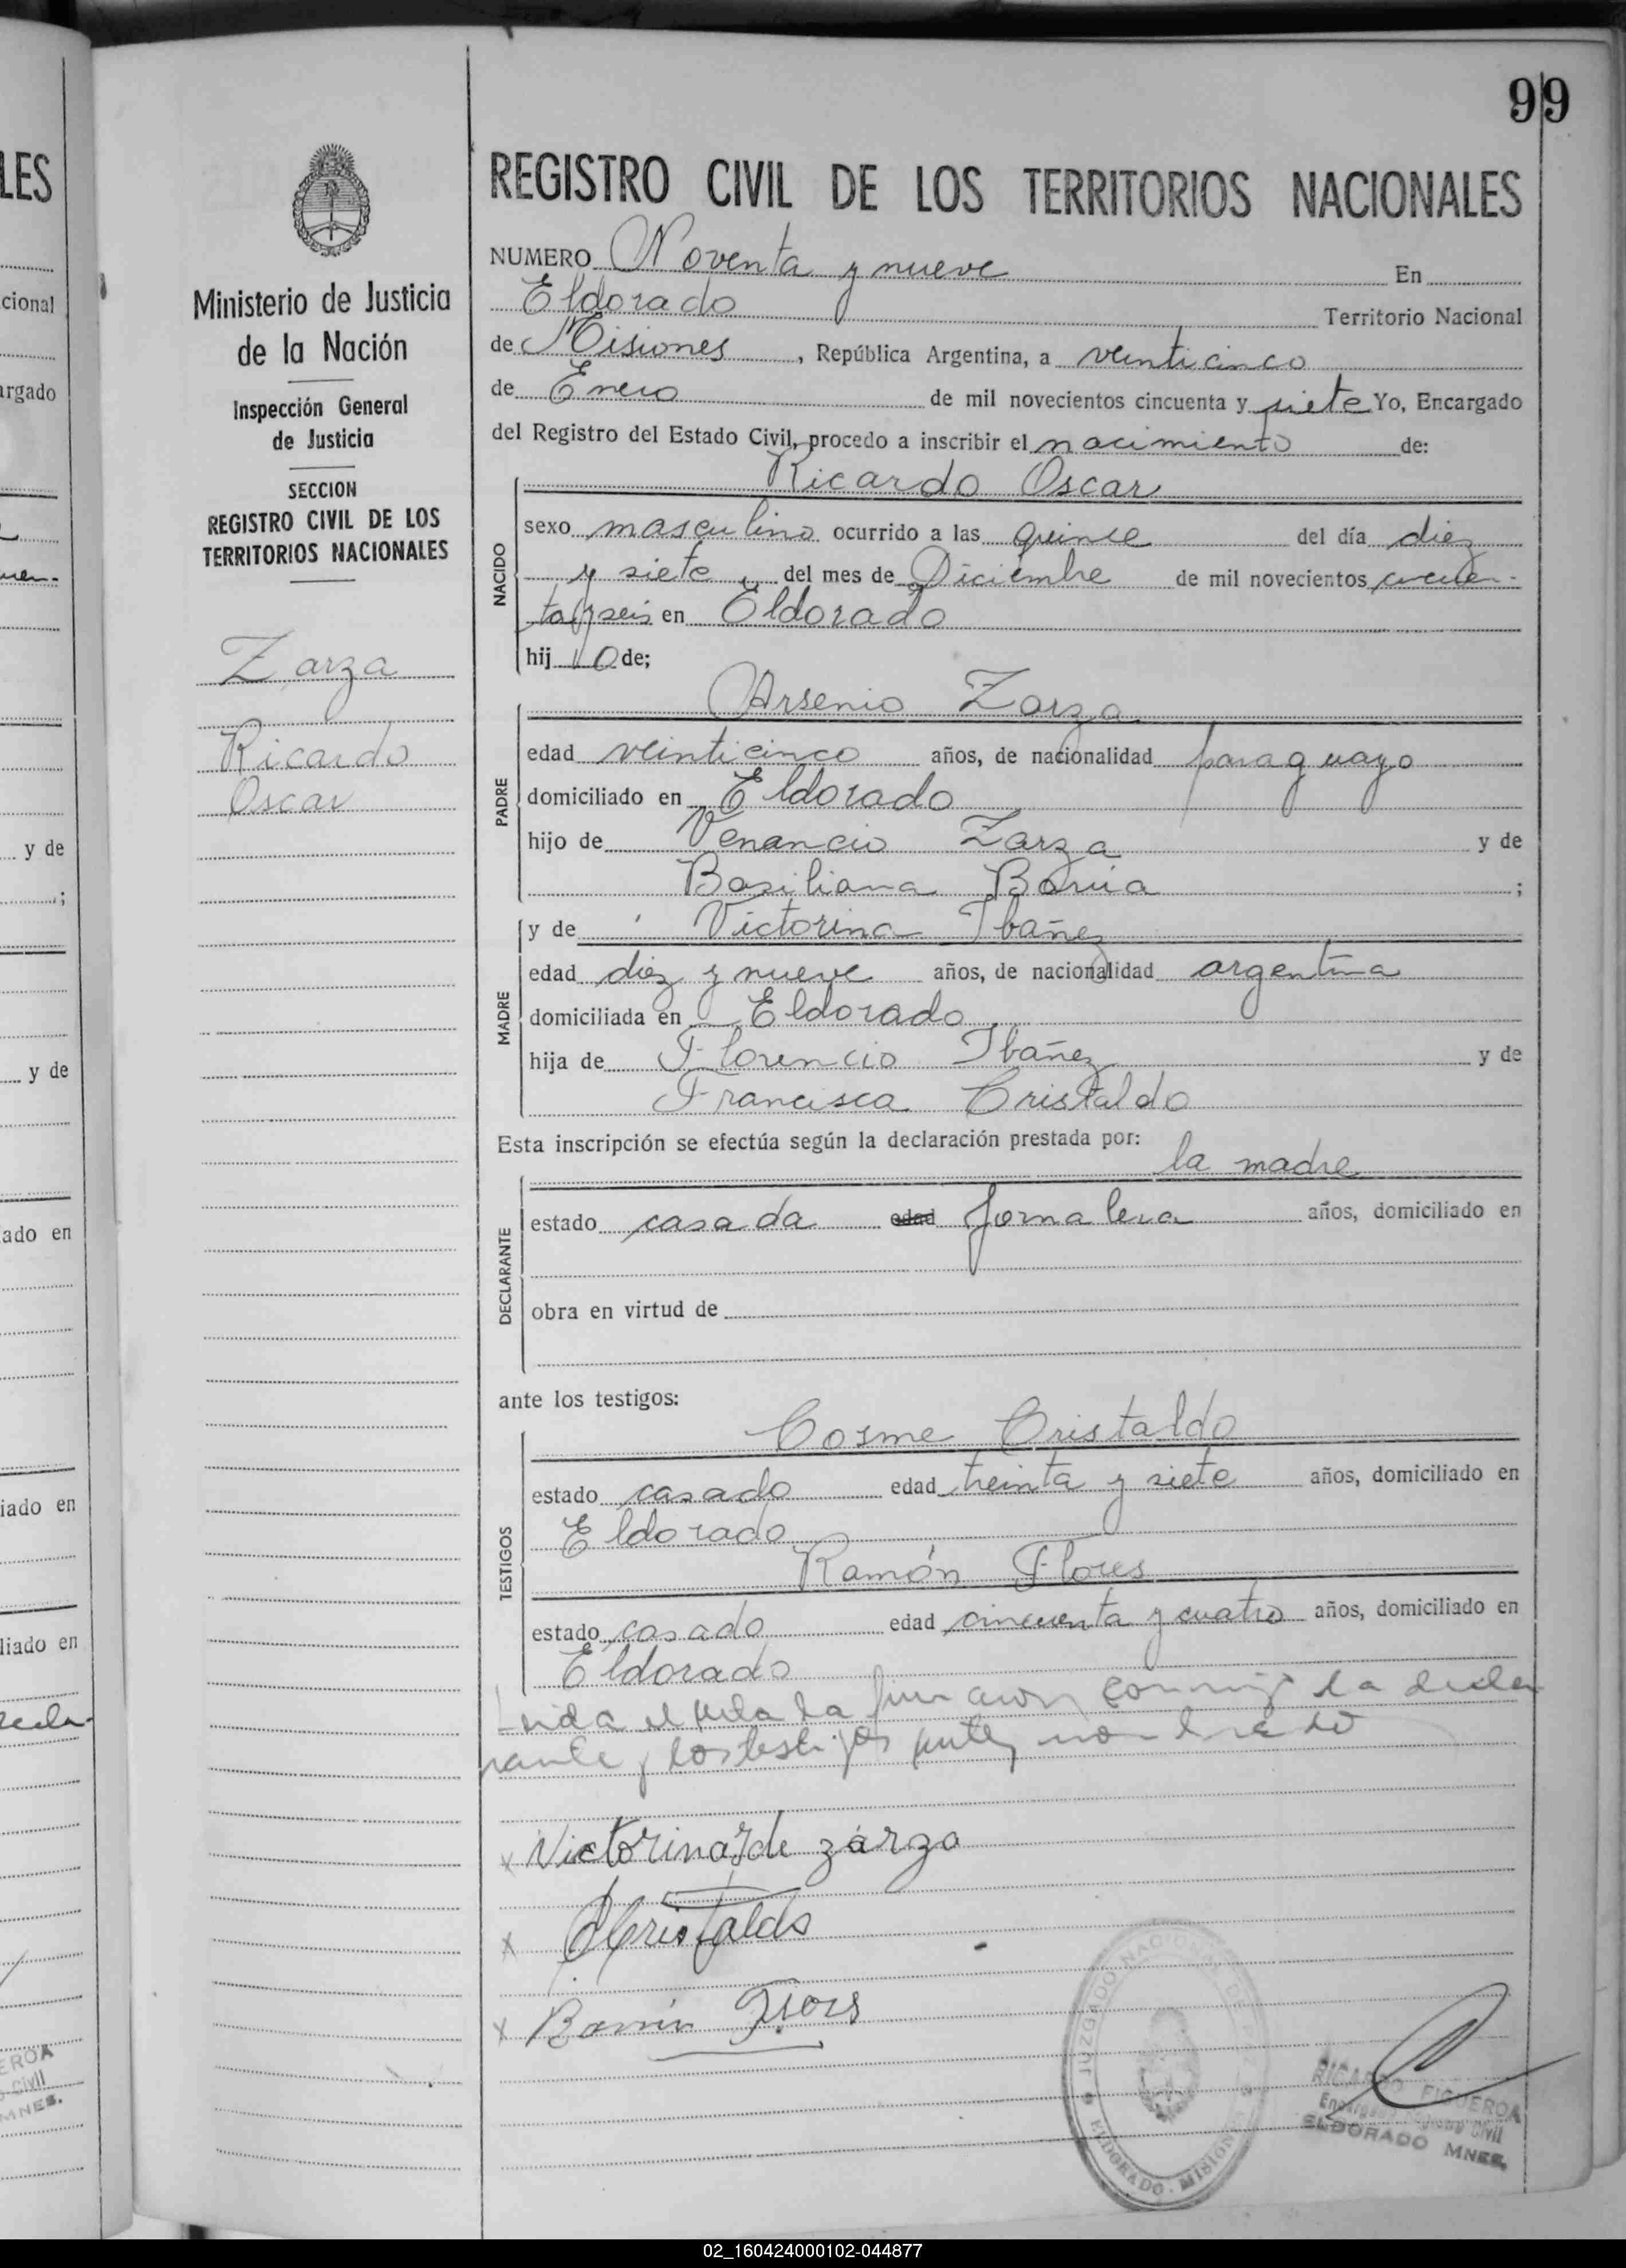 99
REGISTRO CIVIL DE LOS TERRITORIOS NACIONALES
Ministerio de Justicia
de la Nación
Inspección General
de Justicia
SECCION
REGISTRO CIVIL DE LOS
TERRITORIOS NACIONALES
Zarza
Ricardo
Oscar
NUMERO Noventa y nueve En
Eldorado Territorio Nacional
de Misiones, República Argentina, a veinticinco
de Enero de mil novecientos cincuenta y siete Yo, Encargado
del Registro del Estado Civil, procedo a inscribir el nacimiento de:
Ricardo Oscar
NACIDO
sexo masculino ocurrido a las quince del día diez
y siete del mes de Diciembre de mil novecientos cincuen-
ta y seis en Eldorado
hij o de;
Arsenio Zarza
PADRE
edad veinticinco años, de nacionalidad paraguayo
domiciliado en Eldorado
hijo de Venancio Zarza y de
Basiliana ;
y de Victorina Ibañez
MADRE
edad diez y nueve años, de nacionalidad argentina
domiciliada en Eldorado
hija de Florencio Ibañez y de
Francisca Cristaldo
Esta inscripción se efectúa según la declaración prestada por:
la madre
DECLARANTE
estado casada edad jornalera años, domiciliado en
obra en virtud de
ante los testigos:
Cosme Cristaldo
TESTIGOS
estado casado edad treinta y siete años, domiciliado en
Eldorado
Ramón Flores
estado casado edad cincuenta y cuatro años, domiciliado en
Eldorado
el acta la conmigo la decla
rante y los testigos
Victorina de zarza
Cristaldo
Ramón Flores
JUZGADO NACIONAL DE PAZ
ELDORADO - MISIONES
RICARDO FIGUEROA
Encargado Registro Civil
ELDORADO MNES.
02_160424000102-044877